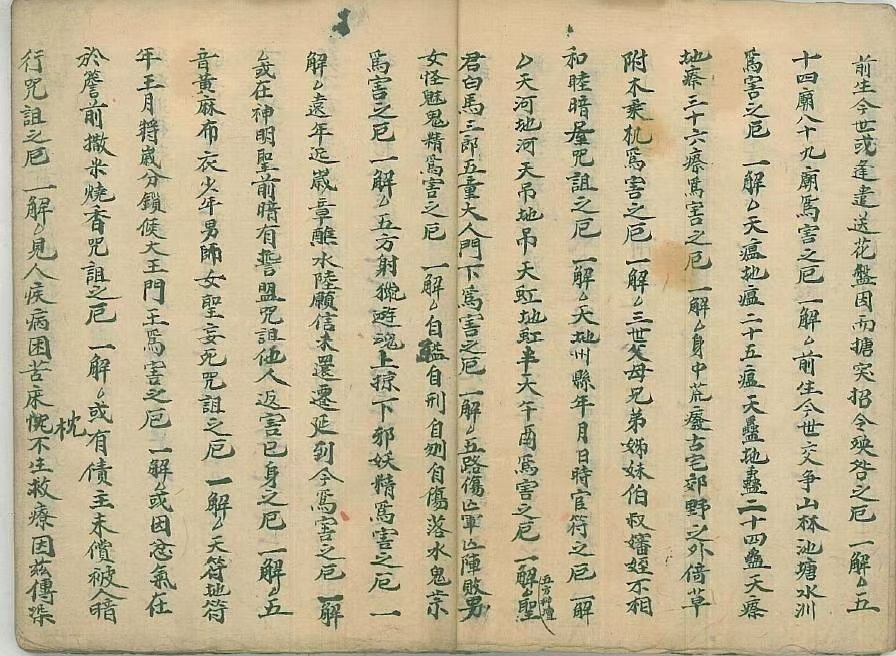 前生今世或逢遣送花盤因而搪突招令殃咎之厄 一解〻五
十四廟八十九廟爲害之厄 一解〻前生今世交争山林池塘水洲
爲害之厄 一解〻天瘟地瘟二十五瘟天蠱地蠱二十四蠱天瘵
地瘵三十六瘵爲害之厄 一解〻身中荒癈古宅郊野之外倚草
附木乘机爲害之厄 一解〻三世父母兄弟姊妹伯叔嬸姪不相
和睦暗屋咒詛之厄 一解〻天地州縣年月日時官符之厄 一解
〻天河地河天吊地吊天虹地虹丰大午酉爲害之厄 一解〻聖
五方神壇
君白馬三郎五童大人門下爲害之厄 一解〻五路傷亡軍亡陣敗男
女怪魅鬼精爲害之厄 一解〻自縊自刑自刎自傷落水鬼祟
爲害之厄 一解〻五方射獵遊魂上掠下邪妖精爲害之厄 一
解〻遠年近歲章醮水陸願信未還遷延到今爲害之厄 一解
〻或在神明聖前暗有誓盟咒詛他人返害己身之厄 一解〻五
音黃麻布衣少年男師女聖妄死咒詛之厄 一解〻天符地符
年王月將歲分鎖候大王門王爲害之厄 一解〻或因忿氣在
於簷前撒米燒香咒詛之厄 一解〻或有債主未償被人暗
行咒詛之厄 一解〻見人疾病困苦床忱不生救療因茲傳染
枕